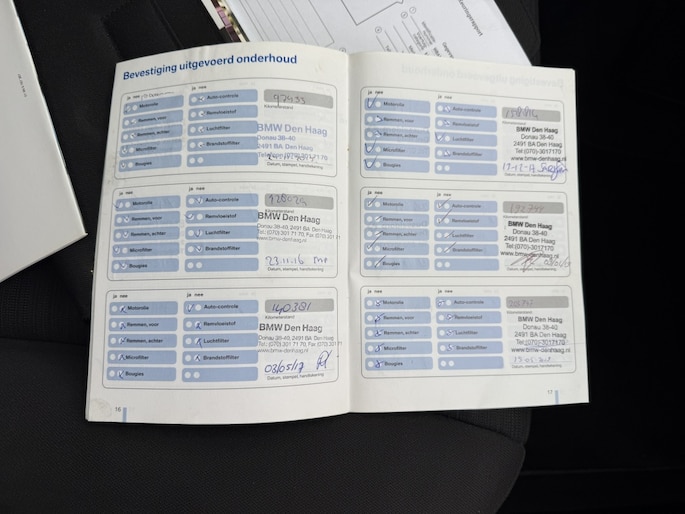 Bevestiging uitgevoerd onderhoud
ja nee ja nee
Motorolie Auto-controle
Remmen, voor Remvloeistof
Remmen, achter Luchtfilter
Microfilter Brandstoffilter
Bougies
Kilometerstand
BMW Den Haag
Donau 38-40
2491 BA Den Haag
Telefoon (070) 3017170
Datum, stempel, handtekening
ja nee ja nee
Motorolie Auto-controle
Remmen, voor Remvloeistof
Remmen, achter Luchtfilter
Microfilter Brandstoffilter
Bougies
Kilometerstand
BMW Den Haag
Donau 38-40, 2491 BA Den Haag
Tel.:(070) 301 71 70, Fax (070)
www.bmw-denhaag.nl
23.11.16
Datum, stempel, handtekening
ja nee ja nee
Motorolie Auto-controle
Remmen, voor Remvloeistof
Remmen, achter Luchtfilter
Microfilter Brandstoffilter
Bougies
140381
Kilometerstand
BMW Den Haag
Donau 38-40, 2491 BA Den Haag
Tel.:(070) 301 71 70, Fax (070)
www.bmw-denhaag.nl
03/05/17
Datum, stempel, handtekening
16
ja nee ja nee
Motorolie Auto-controle
Remmen, voor Remvloeistof
Remmen, achter Luchtfilter
Microfilter Brandstoffilter
Bougies
Kilometerstand
BMW Den Haag
Donau 38-40
2491 BA Den Haag
Tel:(070)-3017170
www.bmw-denhaag.nl
Datum, stempel, handtekening
ja nee ja nee
Motorolie Auto-controle
Remmen, voor Remvloeistof
Remmen, achter Luchtfilter
Microfilter Brandstoffilter
Bougies
Kilometerstand
BMW Den Haag
Donau 38-40
2491 BA Den Haag
Tel:(070)-3017170
www.bmw-denhaag.nl
Datum, stempel, handtekening
ja nee ja nee
Motorolie Auto-controle
Remmen, voor Remvloeistof
Remmen, achter Luchtfilter
Microfilter Brandstoffilter
Bougies
Kilometerstand
BMW Den Haag
Donau 38-40
2491 BA Den Haag
Tel:(070)-3017170
www.bmw-denhaag.nl
Datum, stempel, handtekening
17